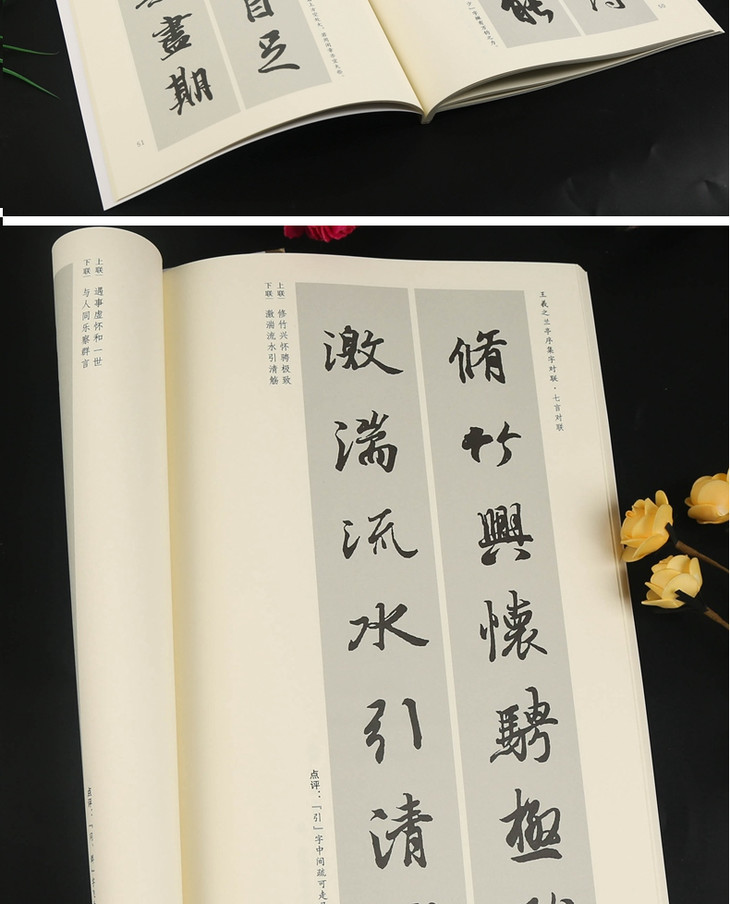 50
自足
盡期
51
王羲之兰亭序集字对联·七言对联
脩竹興懷騁極
激湍流水引清
上联 修竹兴怀骋极致
下联 激湍流水引清觞
点评：「引」字中间疏可走
上联 遇事虚怀和一世
下联 与人同乐察群言
点评：